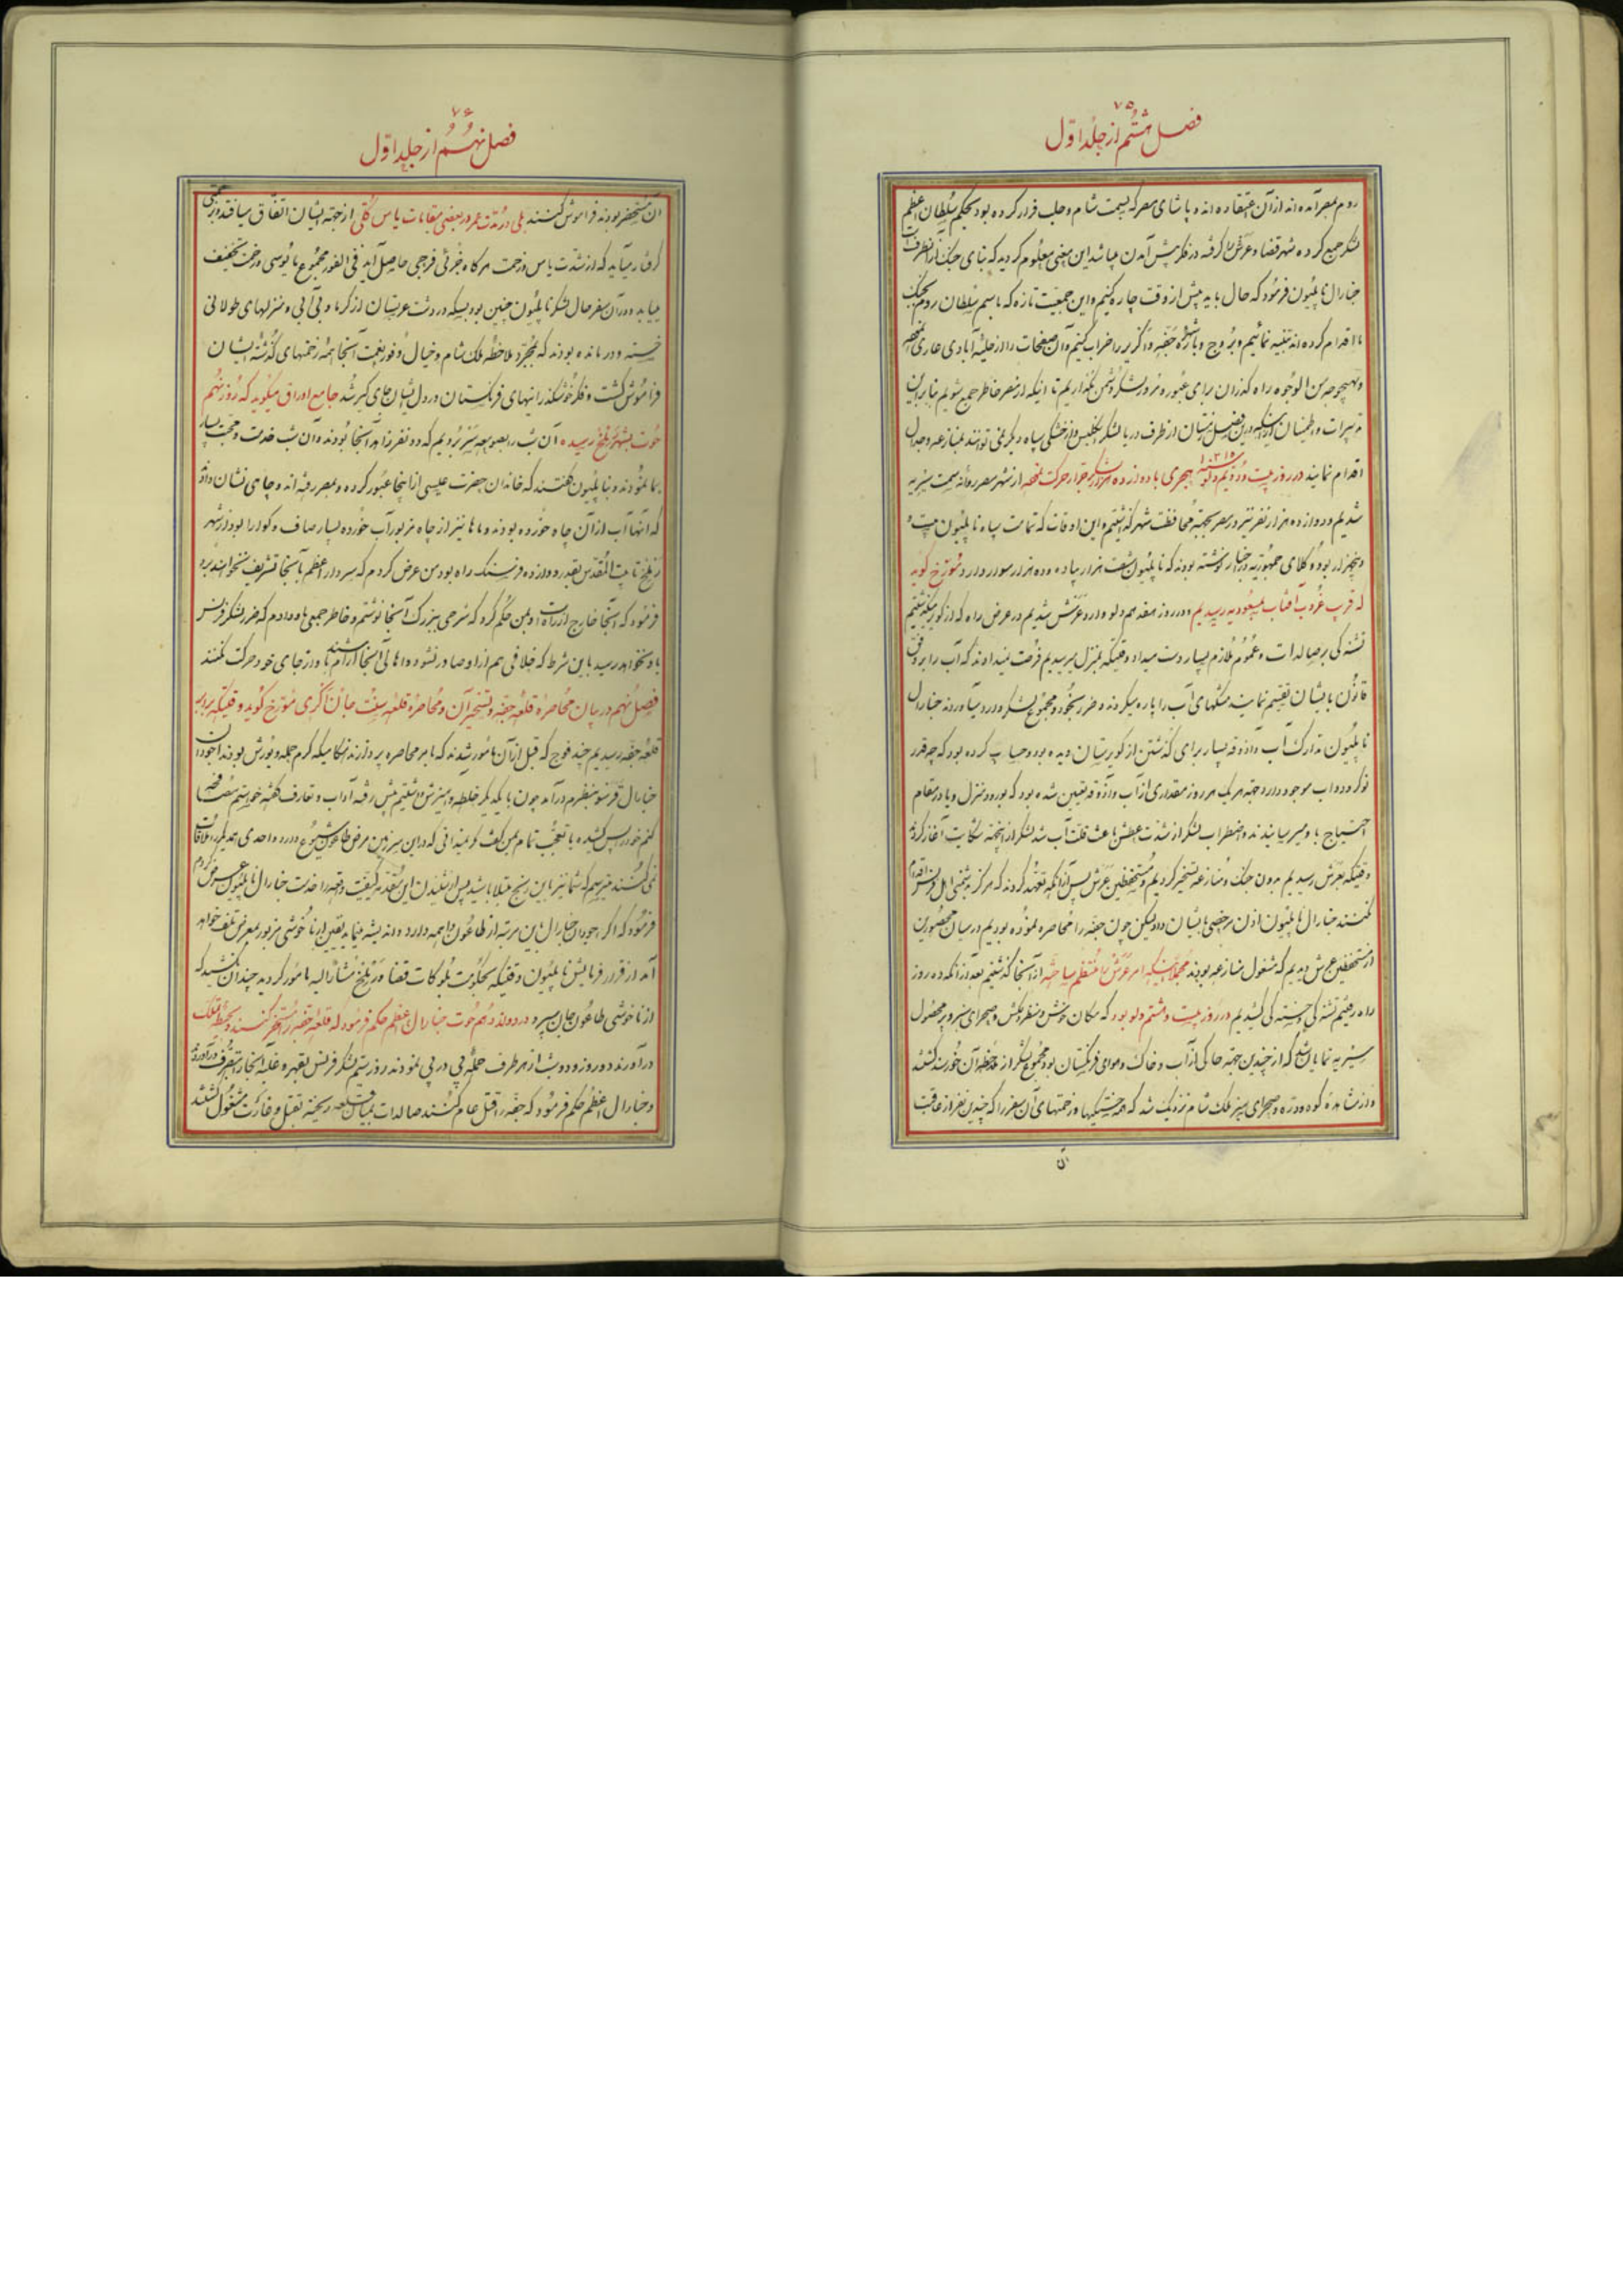 ۷۵
فصل هشتم از جلد اوّل
روم بمصر آمده اند از آن اعتقاد ده اند و پاشای مصر که بسمت شام و حلب فرار کرده بود بحکم سلطان اعظم
لشکر جمع کرده شهر قضا و عرش را گرفته در فکر پیش آمدن میباشد این معنی معلوم گردید که بنای جنک از آنطرف است
جنارال ناپلیون فرمود که حال باید پیش از وقت چاره کنیم و این جمعیت تازه که باسم سلطان روم بجنک
ما اقدام کرده اند تنبیه نمائیم و بروج و باره جفه و اکریر را خراب کنیم و آن صفحات را از حلیه آبادی عاری
و بهیچوجه من الوجوه راه گذران برای عبور و مرور لشکر دشمن نگذاریم تا اینکه از مصر خاطر جمع شویم بنا براین
تدبیرات و اطمینان از اینکه در این فصل زمستان از طرف دریا لشکر انکلیس و از خشکی سپاه دیگر نمی توانند بمنازعه و جدال
اقدام نمایند در روز بیست و دویم دلو سنه ۱۲۱۳ هجری با دوازده هزار لشکر جرار حرکت از شهر مصر روانه سمت سیریه
شدیم و دوازده هزار نفر نیز در مصر بجهة محافظت شهر گذاشتیم و این اوقات که تمامت سپاه ناپلیون بیست و
پنجهزار بود وکلای جمهوریه در اخبار نوشته بودند که ناپلیون شصت هزار پیاده و ده هزار سوار دارد مورخ گوید
که قریب غروب آفتاب بمسعودیه رسیدیم و در روز هفدهم دلو وارد عرش شدیم در عرض راه که از کویر میگذشتیم
تشنه گی بر صالدات و عموم ملازم بسیار دست میداد وقتیکه بمنزل میرسیدیم فرصت نمیدادند که آب را بر وفق
قانون بایشان تقسیم نمایند مشکهای آب را پاره میکردند و ضرر بخود و مجموع لشکر وارد میآوردند جنارال
ناپلیون تدارک آب و آذوقه بسیار برای گذشتن از کویرستان دیده بود و حساب کرده بود که چه قدر
نوکر و دواب موجود دارد جهة هر یک هر روز مقداری از آب و آذوقه تعیین شده بود که بورود منزل و یا در مقام
احتیاج باو میرسانیدند و اضطراب لشکر از شدت عطش باعث قلت آب شد لشکر از اینجهة شکایت آغاز کردند
وقتیکه بعرش رسیدیم بدون جنک و منازعه تسخیر کردیم و مستحفظین عرش پس از آنکه تعهد کردند که هرگز بدشمنی اهل فرنس اقدام
نکنند جنارال ناپلیون اذن مرخصی بایشان داد لیکن چون جفه را محاصره نموده بودیم در میان محصورین
از مستحفظین عرش دیدیم که مشغول منازعه بودند مجملاً اینکه امر عرش را منتظم ساخته از آنجا گذشتیم بعد از آنکه ده روز
راه رفتیم تشنه گی و خسته گی کشیدیم در روز بیست و هشتم دلو بود که مکان خوش و منظر دلکش و صحرای سبز و پر محصول
سیریه نمایان شد که از چندین جهة حاکی از آب و خاک و هوای فرنگستان بود مجموع لشکر از ملاحظه آن خورسند گشتند
و از مشاهده کوه و دره و صحرای سبز ملک شام نزدیک شد که همه خستگیها و زحمتهای آن سفر را که چندین نفر از عاقبت
آن
۷۶
فصل نهم از جلد اوّل
آن متحضر بودند فراموش کنند بلی در مدت عمر در بعضی مقامات یاس کلی از جهة ایشان اتفاق میافتد و بر
گرفتار میآید که از شدت یاس و زحمت هر گاه جزئی فرجی حاصل آید فی الفور مجموع مایوسی و زحمت تخفیف
مییابد و در آن سفر حال لشکر ناپلیون چنین بود بسکه در دشت عربستان از گرما و بی آبی و منزلهای طولانی
خسته و در مانده بودند که بمجرد ملاحظه ملک شام و خیال وفور نعمت آنجا همه زحمتهای گذشته ایشان
فراموش گشت و فکر خوشگذرانیهای فرنگستان در دل ایشان جای گیر شد جامع اوراق میگوید که روز نهم
حوت بشهر رسیده آن شب را بصومعه بسر بردیم که دو نفر زاهد آنجا بودند و آن شب خدمت و محبت بسیار
بما نمودند و بناپلیون گفتند که خاندان حضرت عیسی از اینجا عبور کرده و بمصر رفته اند و چاهی نشان داد
که آنها آب از آن چاه خورده بودند و ماها نیز از چاه مزبور آب خورده بسیار صاف و گوارا بود و از شهر
تا بیت المقدس بقدر دوازده فرسنگ راه بود من عرض کردم که سردار اعظم بآنجا تشریف نخواهند برد
فرمود که آنجا خارج از راه است و بمن حکم کرد که شرحی ببزرگ آنجا نوشتم و خاطر جمعی باو دادم که ضرر لشکر فرنس
باو نخواهد رسید باین شرط که خلافی هم از او صادر نشود و اهالی آنجا آرام باشند و از جای خود حرکت نکنند
فصل نهم در بیان محاصره قلعه جفه و تسخیر آن و محاصره قلعه سنت جان داکری مورخ گوید وقتیکه بردیه
قلعه جفه رسیدیم چند فوج که قبل از آن مامور شدند که بامر محاصره پردازند هنگامیکه گرم حمله و یورش بودند آجودان
جنارال بنظرم درآمد چون با یکدیگر خلطه و آمیزش داشتیم پیش رفته آداب و تعارف گفته خواستم مصافحه
کنم خود را پس کشیده با تعجب تمام بمن گفت کو نمیدانی که در این سرزمین مرض طاعون شیوع دارد و احدی بهمدیگر ملاقات
نمی کنند میترسم که شما نیز باین رنج مبتلا باشید پس از شنیدن این مقدمه کیفیت واقعه را خدمت جنارال ناپلیون عرض کردم
فرمود که اگر آجودان جنارال باین مرتبه از طاعون واهمه دارد و اندیشه مینماید یقین از ناخوشی مزبور بمعرض تلف خواهد
آمد از قرار فرمایش ناپلیون وقتیکه بحکومت بلوکات قضا و مشارالیه مامور گردید چندان نکشید که
از ناخوشی طاعون جان سپرد در دوازدهم حوت جنارال اعظم حکم فرمود که قلعه جفه را مستخر کنند و بحیطه تملک
درآورند دو روز و دو شب از هر طرف حمله پی در پی نمودند روز سیم لشکر فرنس بقهر و غلبه آنجا را بتصرف درآورد
و جنارال اعظم حکم فرمود که جفه را قتل عام کنند صالدات بمیان قلعه ریخته بقتل و غارت مشغول گشتند